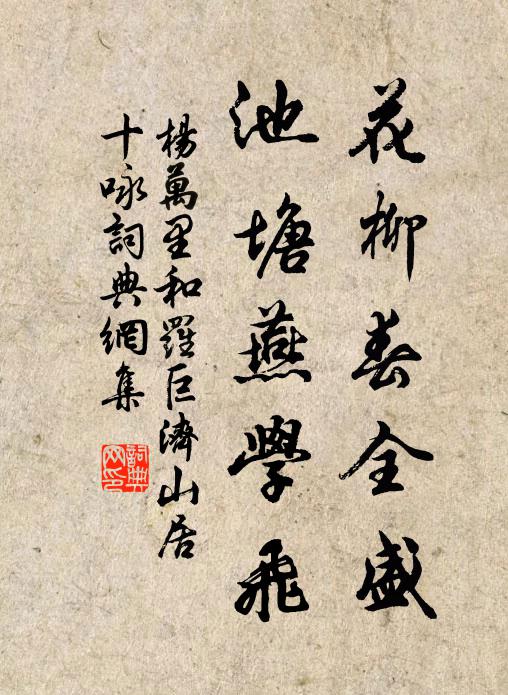 花柳春全盛
池塘燕學飛
楊萬里和羅巨濟山居
十咏詞典網集
詞典网印